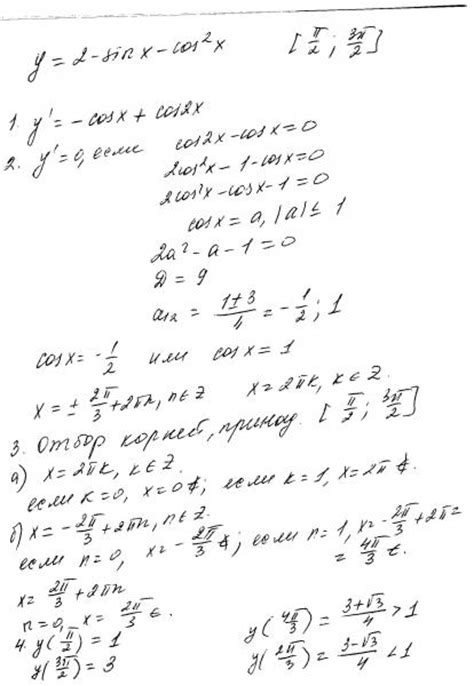 y = 2 - sin x - cos²x [π/2; 3π/2]
1. y' = -cos x + cos2x
2. y' = 0, если cos2x - cos x = 0
2cos²x - 1 - cos x = 0
2cos²x - cos x - 1 = 0
cos x = a, |a| ≤ 1
2a² - a - 1 = 0
D = 9
a₁,₂ = (1±3)/4 = -1/2; 1
cos x = -1/2 или cos x = 1
x = ± 2π/3 + 2πn, n∈Z x = 2πk, k∈Z.
3. Отбор корней, принад. [π/2; 3π/2]
а) x = 2πk, k∈Z.
если k=0, x=0 ∉; если k=1, x=2π ∉.
б) x = -2π/3 + 2πn, n∈Z.
если n=0, x = -2π/3 ∉; если n=1, x = -2π/3 + 2π =
= 4π/3 ∈.
x = 2π/3 + 2πn
n=0, x = 2π/3 ∈.
4. y(π/2) = 1 y(4π/3) = (3+√3)/4 > 1
y(3π/2) = 3 y(2π/3) = (3-√3)/4 < 1